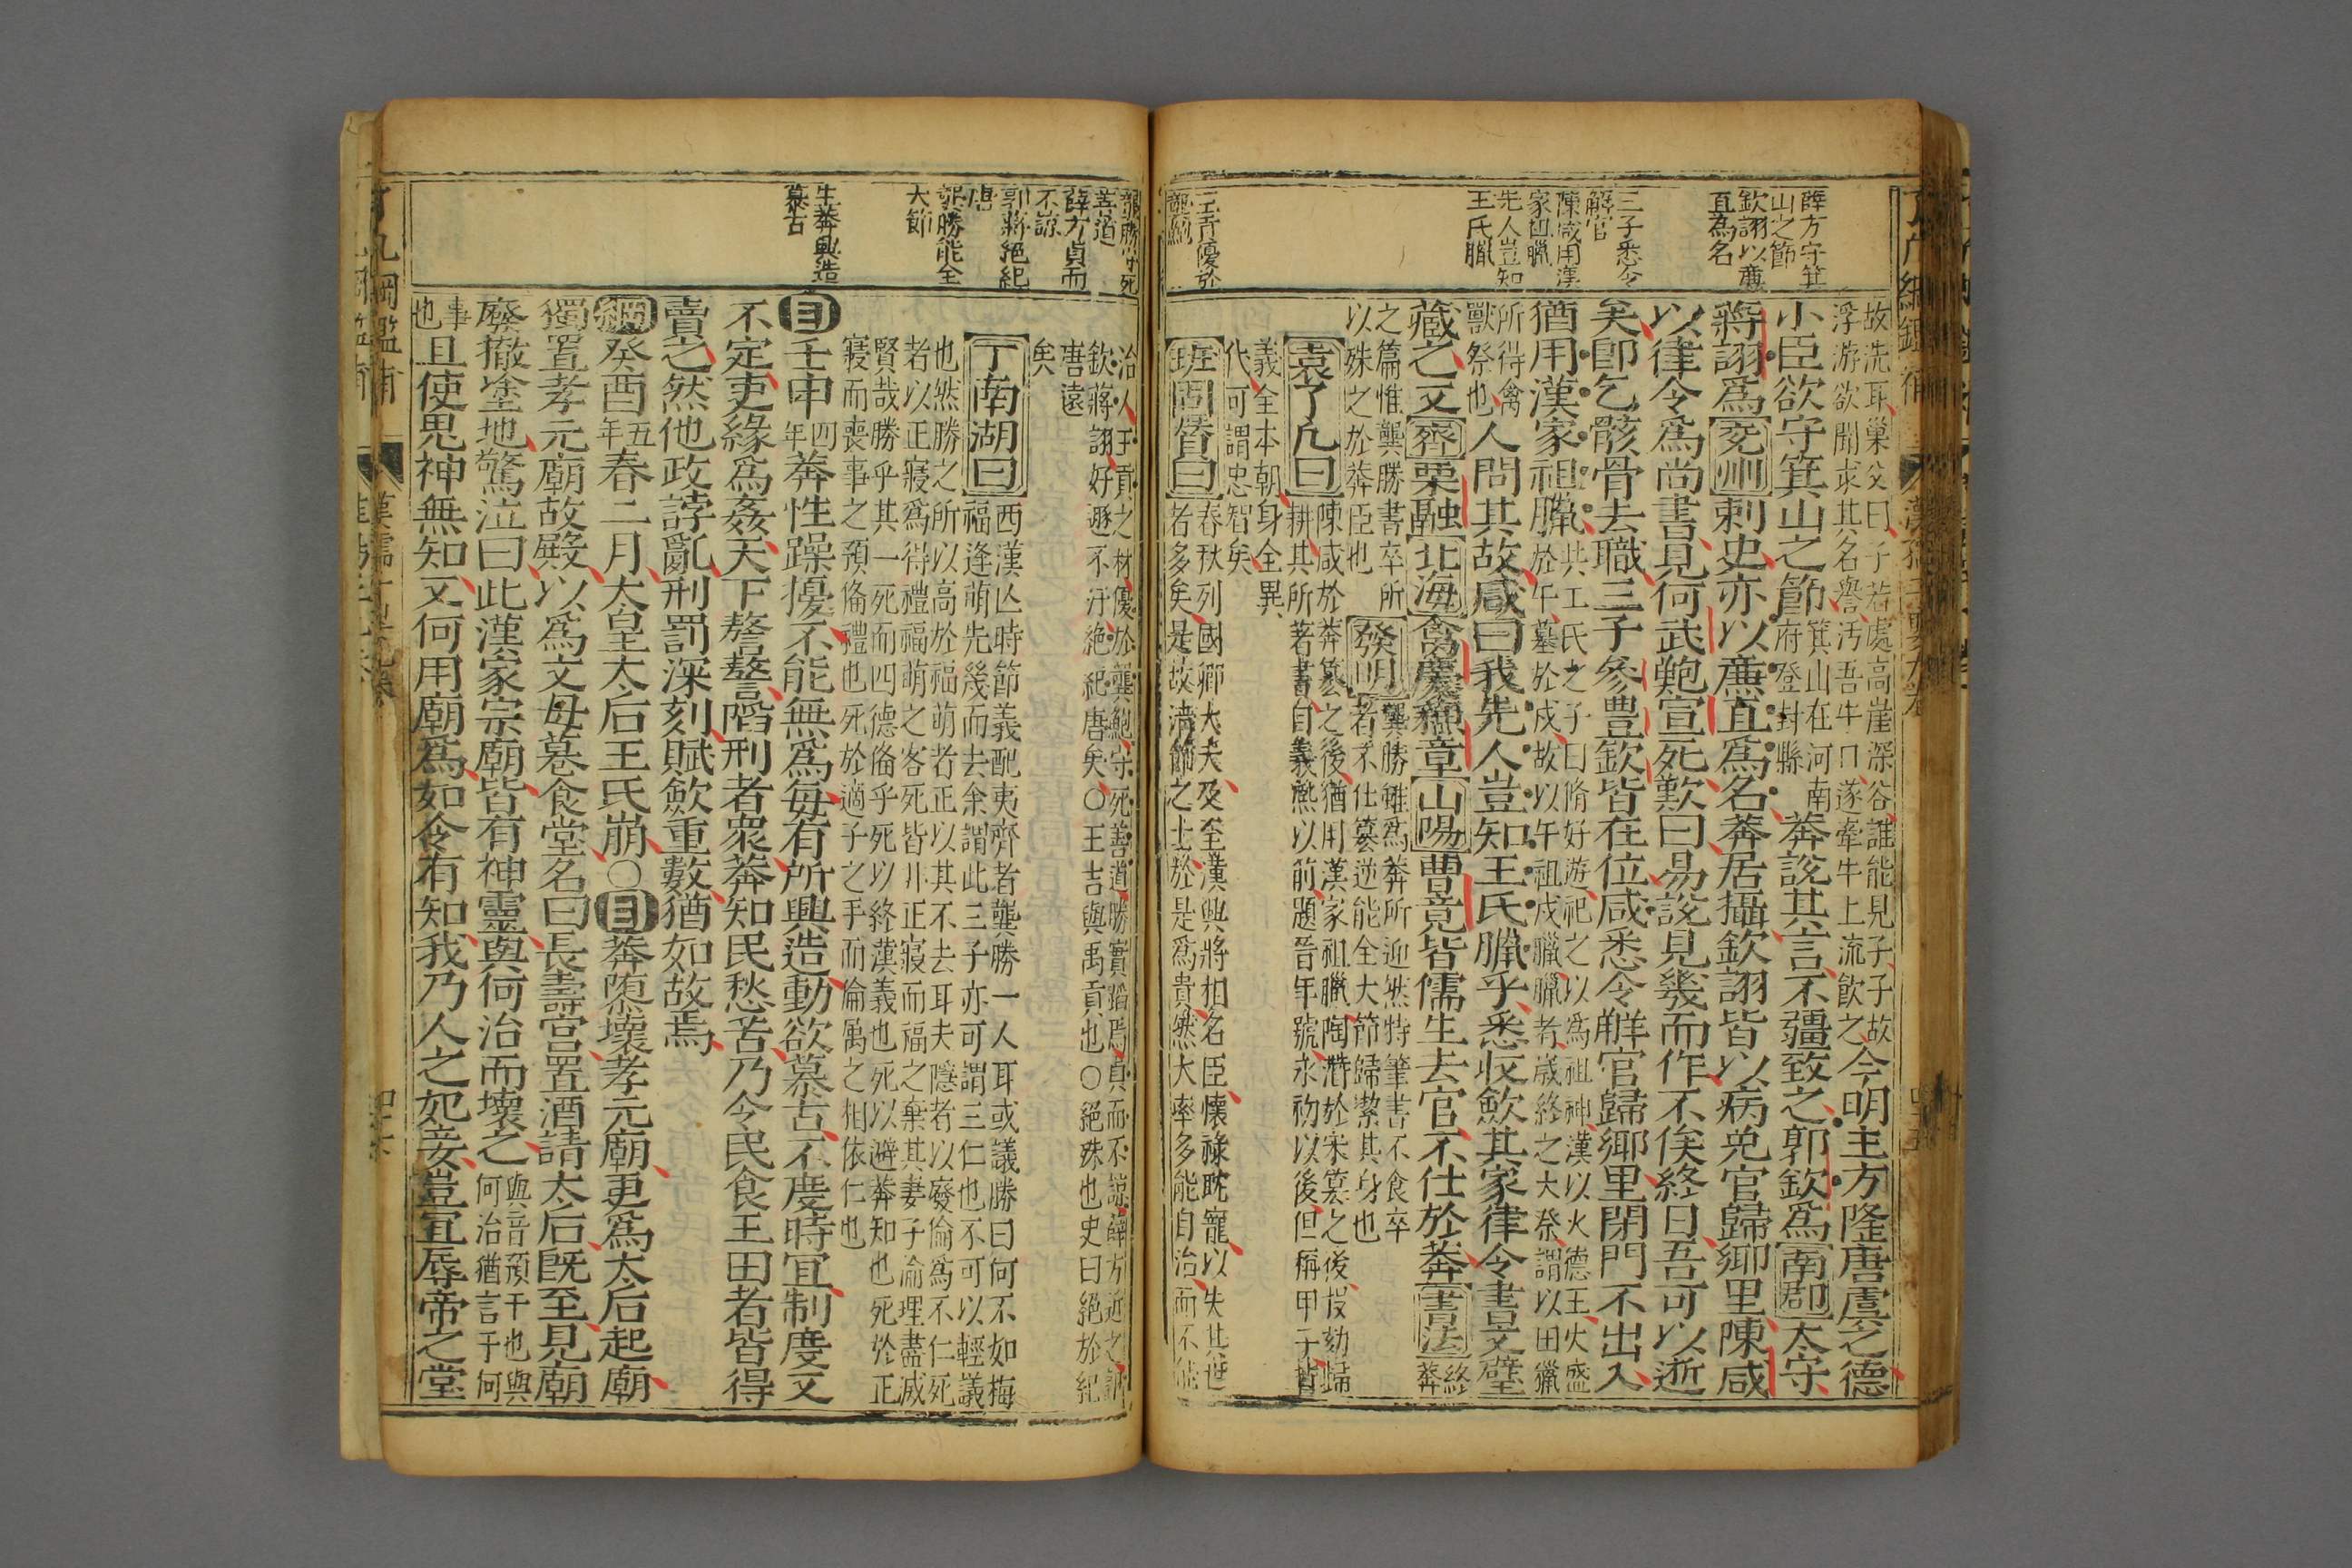 薛方守箕
山之節
欽詡以廉
直為名
三子悉令
解官
陳咸用漢
家祖臘
先人豈知
王氏臘
王貢優於
龔鮑
故洗耳巢父曰子若處高崖深谷誰能見子子故
浮游欲聞求其名譽汚吾牛口遂牽牛上流飲之今明主方隆唐虞之德
小臣欲守箕山之節箕山在河南
府登封縣莽說其言不彊致之郭欽爲南郡太守
蔣詡爲兗州刺史亦以廉直爲名莽居攝欽詡皆以病免官歸鄉里陳咸
以律令爲尚書見何武鮑宣死歎曰易說見幾而作不俟終日吾可以逝
矣卽乞骸骨去職三子參豊欽皆在位咸悉令觧官歸鄉里閉門不出入
猶用漢家祖臘共工氏之子曰脩好遊祀之以爲祖神漢以火德王火盛
於午墓於戍故以午祖戍臘臘者歲終之大祭謂以田獵
所得禽
獸祭也人問其故咸曰我先人豈知王氏臘乎悉収歛其家律令書文壁
藏之又齊栗融北海禽慶蘇章山陽曹竟皆儒生去官不仕於莽書法終
莽
之篇惟龔勝書卒所
以殊之於莽臣也發明龔勝雖爲莽所迎然特筆書不食卒
者不仕簒逆能全大節歸潔其身也
袁了凡曰陳咸於莽簒之後猶用漢家祖臘陶濳於宋簒之後投劾歸
耕其所著書自義熙以前題晉年號永初以後但稱甲子皆
義全本朝身全異
代可謂忠智矣
班固贊曰春秋列國卿大夫及至漢興將相名臣懷祿耽寵以失其世
者多矣是故清節之士於是爲貴然大率多能自治而不能
龔勝守死
善道
薛方貞而
不諒
郭蔣絕紀
唐
龔勝能全
大節
生莽興造
慕古
治人王貢之材優於龔鮑守死善道勝實蹈焉貞而不諒薛方近之郭
欽蔣詡好遯不汙絶紀唐矣〇王吉與禹貢也〇絕殊也史曰絕於紀
唐遠
矣
丁南湖曰西漢亾時節義配夷齊者龔勝一人耳或議勝曰何不如梅
福逢萌先幾而去余謂此三子亦可謂三仁也不可以輕議
也然勝之所以高於福萌者正以其不去耳夫隱者以廢倫爲不仁死
者以正寢爲得禮福萌之客死皆非正寢而福之棄其妻子淪理盡滅
賢哉勝乎其一死而四德俻乎死以終漢義也死以避莽知也死於正
寢而喪事之預俻禮也死於適子之手而倫屬之相依仁也
目壬申四
年莽性躁擾不能無爲每有所興造動欲慕古不度時宜制度又
不定吏緣爲姦天下謷謷陷刑者衆莽知民愁苦乃令民食王田者皆得
賣之然他政誖亂刑罰深刻賦歛重數猶如故焉
綱癸酉五
年春二月大皇太后王氏崩〇目莽隳壞孝元廟更爲太后起廟
獨置孝元廟故殿以爲文母篹食堂名曰長壽宮置酒請太后旣至見廟
廢撤塗地驚泣曰此漢家宗廟皆有神靈與何治而壞之與音預干也與
何治猶言于何
事
也且使思神無知又何用廟爲如令有知我乃人之妃妾豈宜辱帝之堂